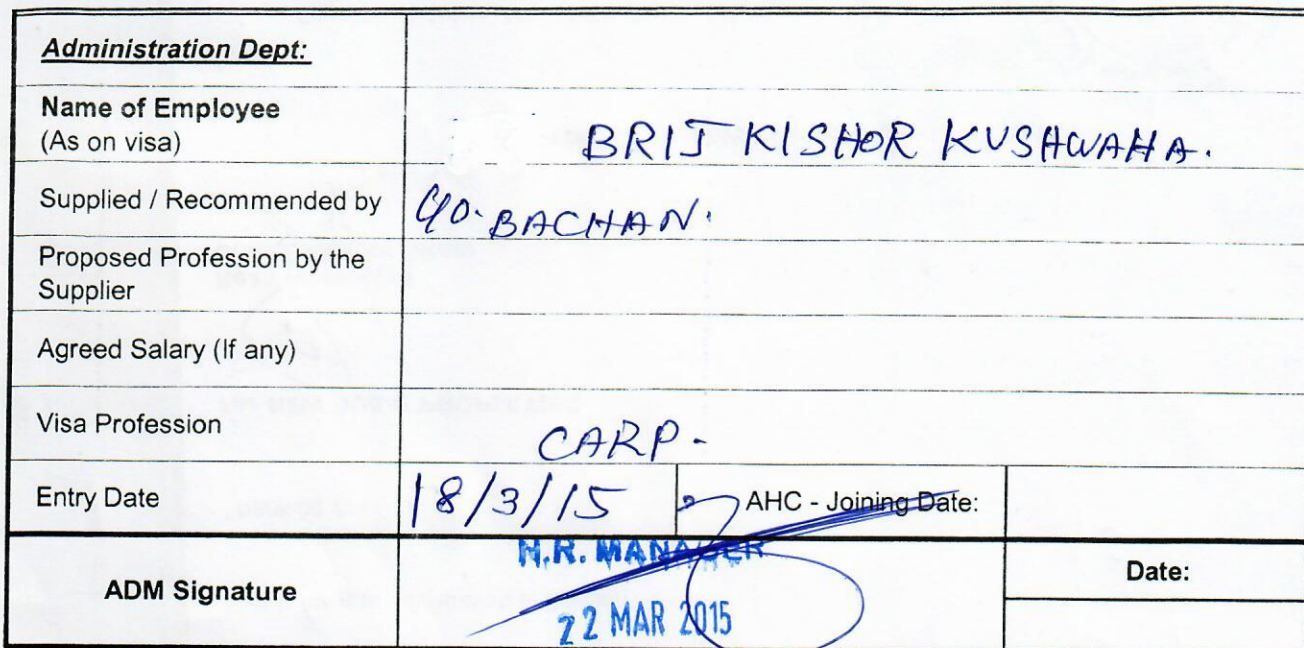 Administration Dept:
Name of Employee
(As on visa)
BRIJ KISHOR KUSHWAHA.
Supplied / Recommended by
C/O. BACHAN.
Proposed Profession by the
Supplier
Agreed Salary (If any)
Visa Profession
CARP-
Entry Date
18/3/15
AHC - Joining Date:
ADM Signature
H.R. MANAGER
22 MAR 2015
Date: